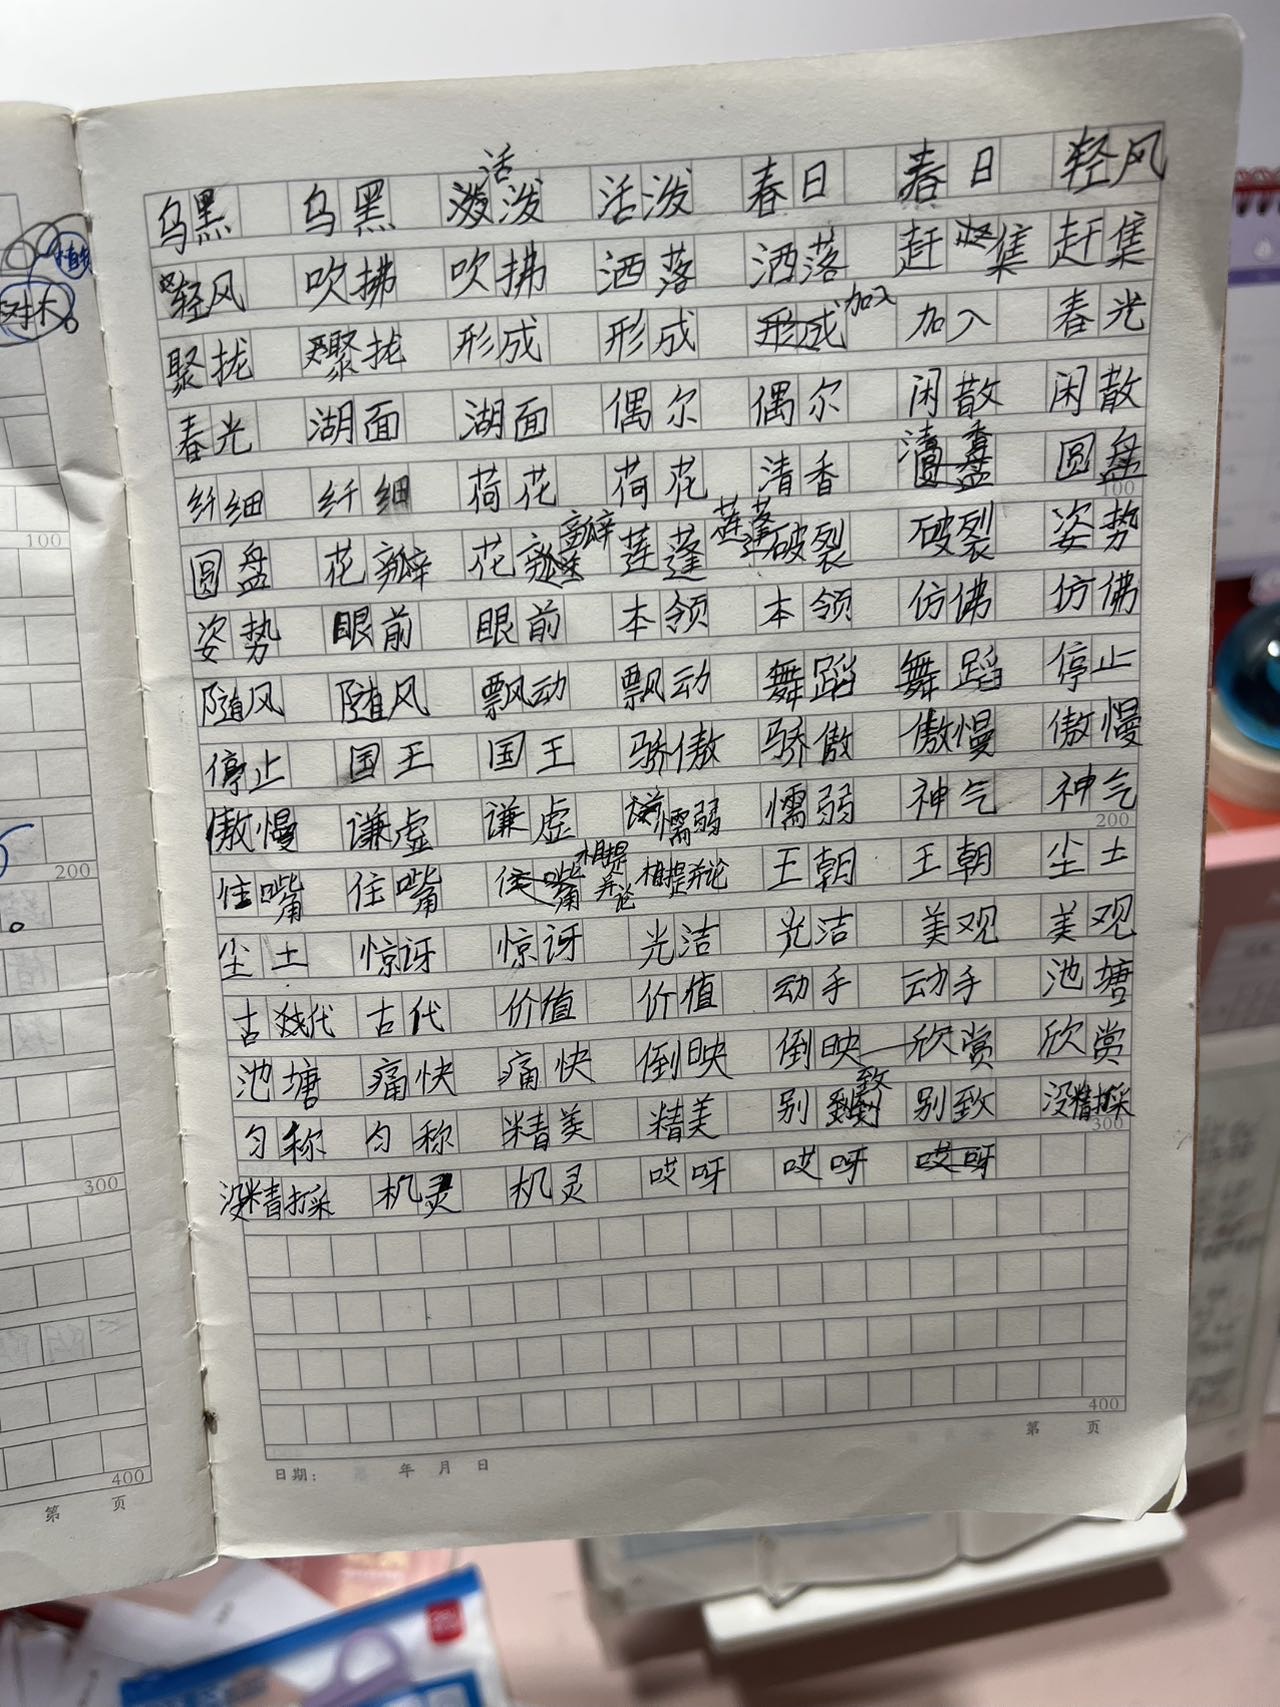 乌黑 乌黑 活泼 活泼 春日 春日 轻风
轻风 吹拂 吹拂 洒落 洒落 赶集 赶集
聚拢 聚拢 形成 形成 加入 加入 春光
春光 湖面 湖面 偶尔 偶尔 闲散 闲散
纤细 纤细 荷花 荷花 清香 清香 圆盘
圆盘 花瓣 花瓣 莲蓬 莲蓬 破裂 破裂 姿势
姿势 眼前 眼前 本领 本领 仿佛 仿佛
随风 随风 飘动 飘动 舞蹈 舞蹈 停止
停止 国王 国王 骄傲 骄傲 傲慢 傲慢
傲慢 谦虚 谦虚 懦弱 懦弱 神气 神气
住嘴 住嘴 相提并论 相提并论 王朝 王朝 尘土
尘土 惊讶 惊讶 光洁 光洁 美观 美观
古代 古代 价值 价值 动手 动手 池塘
池塘 痛快 痛快 倒映 倒映 欣赏 欣赏
匀称 匀称 精美 精美 别致 别致 没精打采
没精打采 机灵 机灵 哎呀 哎呀 哎呀
100
200
300
400
第 页
日期： 年 月 日
100
200
300
400
第 页